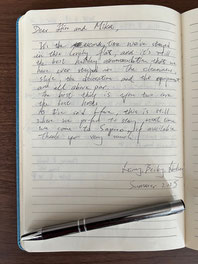 Dear Jim and Mika,
It's the second time we've stayed
in this lovely flat, and it's still
the best holiday accommodation that we
have ever stayed in. The cleanliness,
style, the direction and the equipment
are all above par.
The best thing is you two are
the best hosts.
place, this is still
where we prefer to stay, next time
we come to Sapporo, if available.
Thank you very much!
Summer, 2015